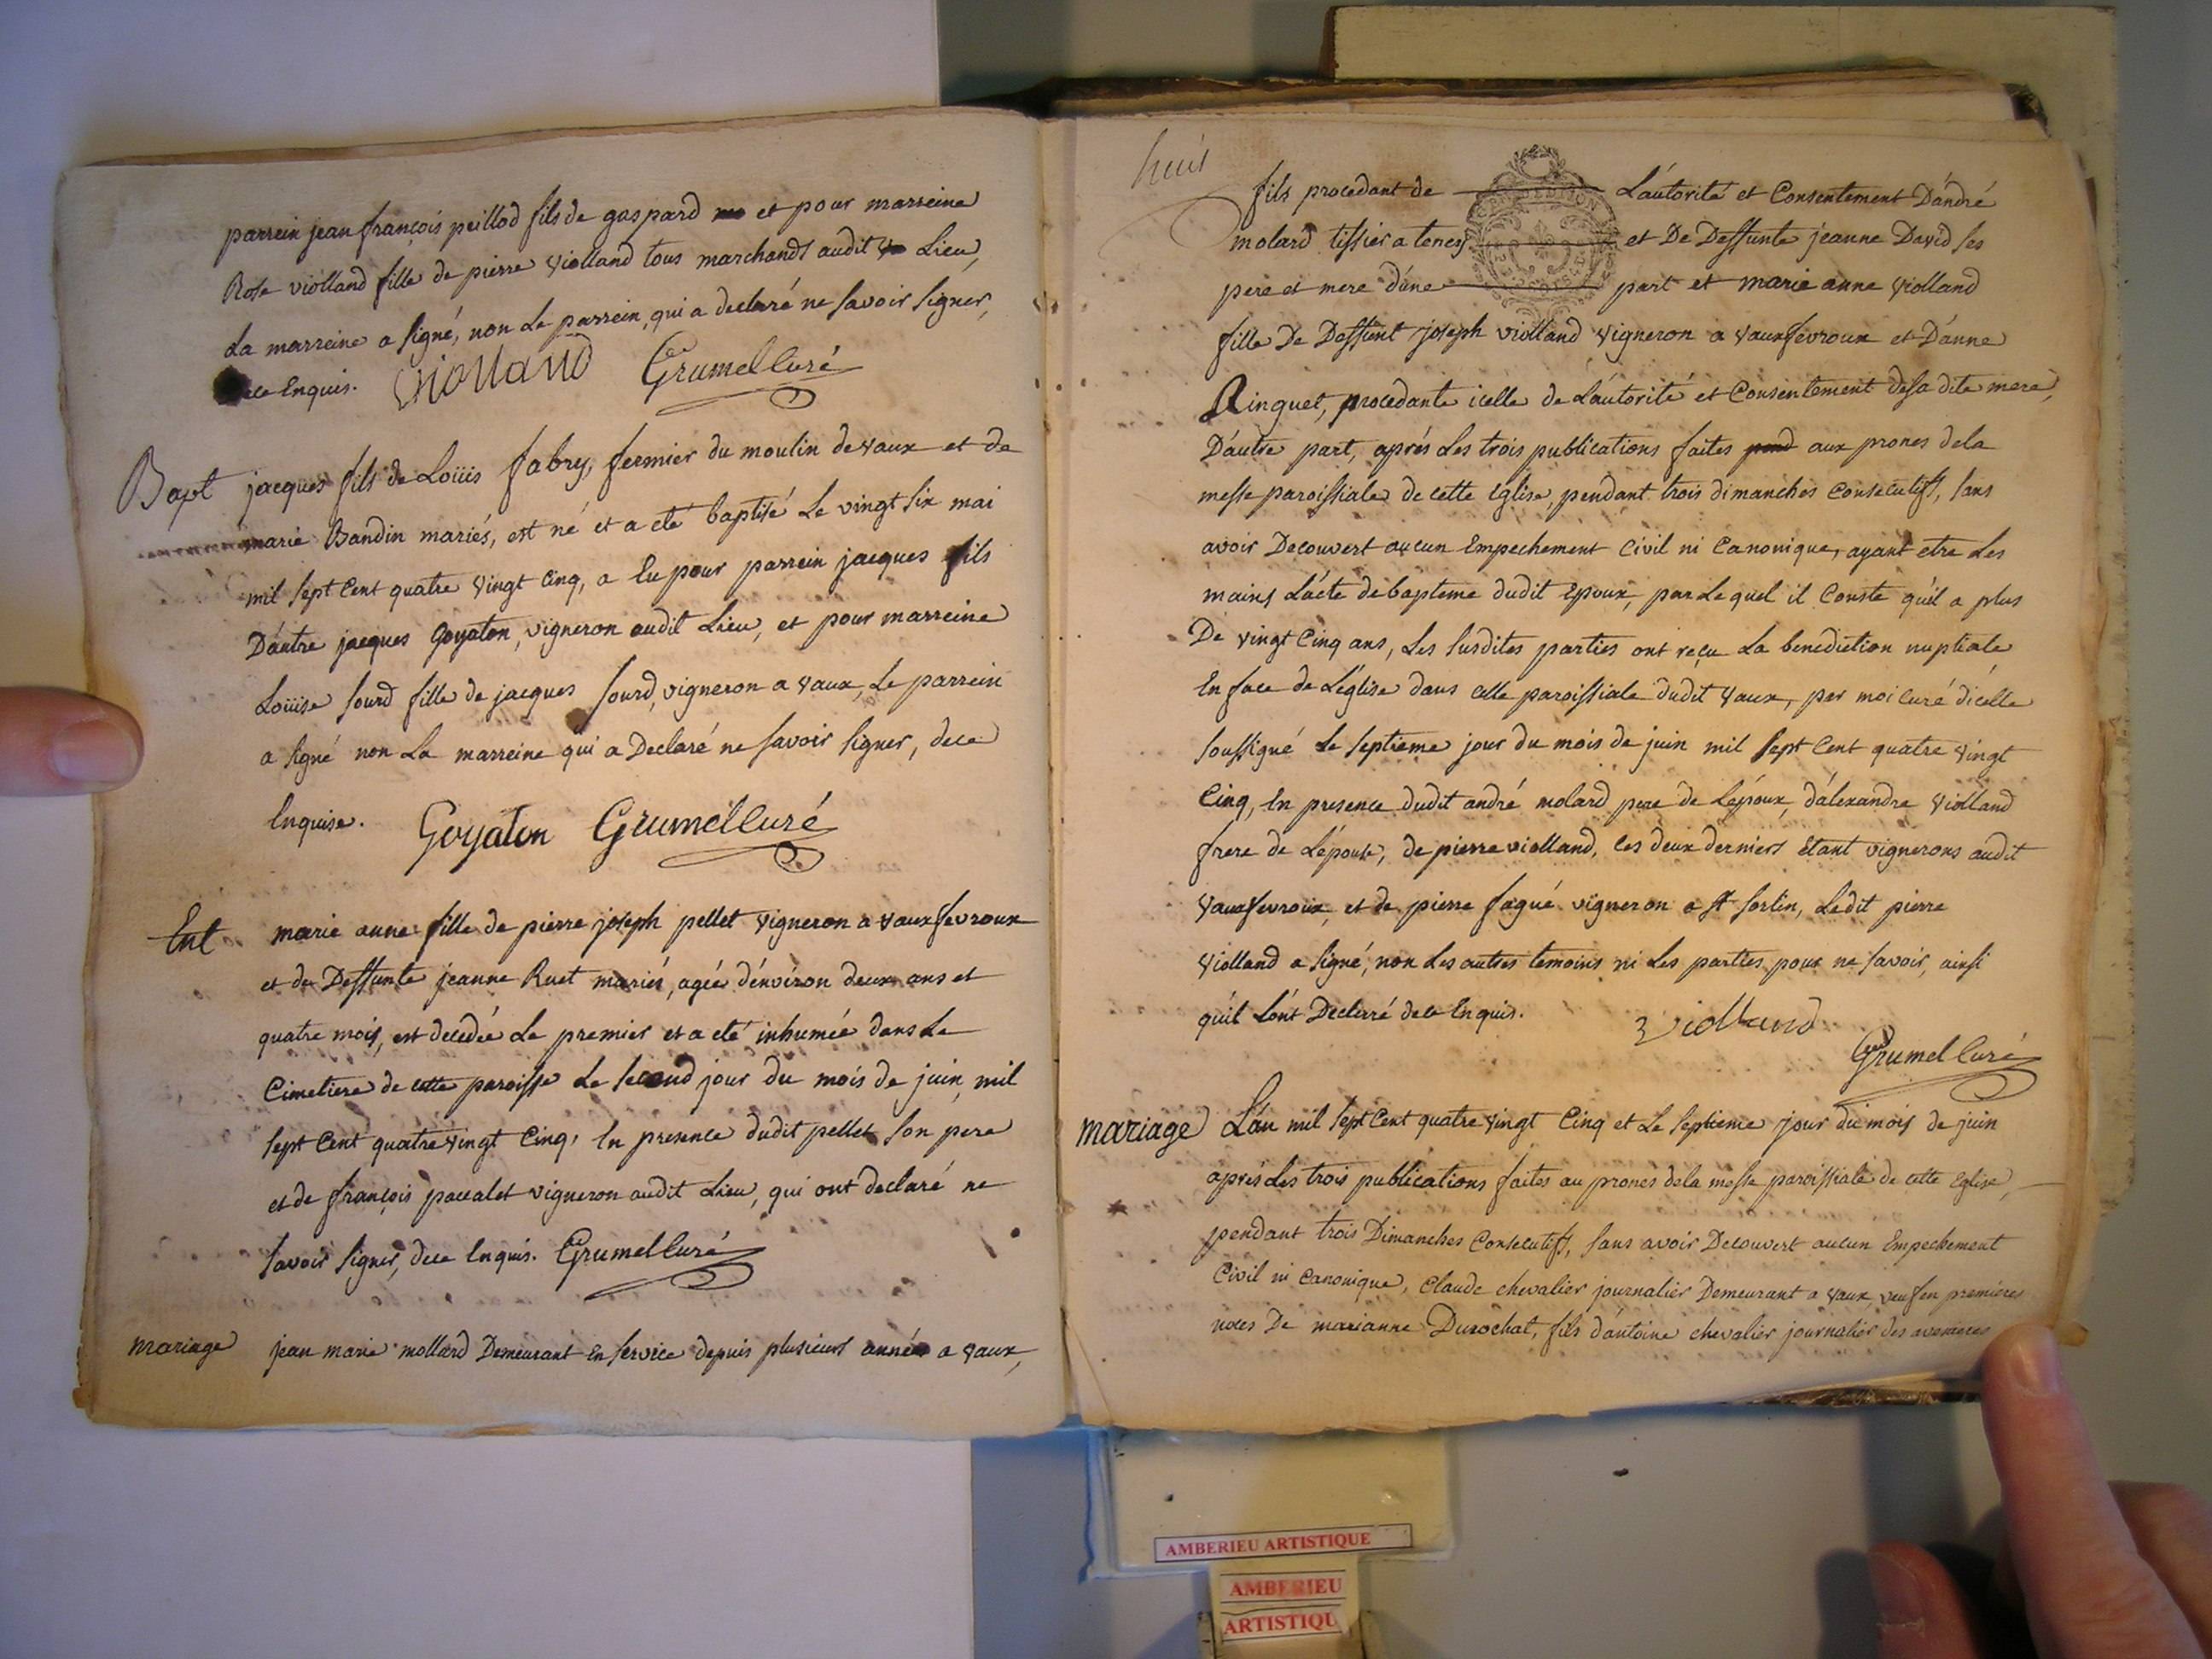 parrein jean françois peillod fils de gaspard et pour marreine
Rose violland fille de pierre violland tous marchands audit Lieu,
La marreine a signé, non Le parrein, qui a declaré ne savoir signer,
dece Enquis. violland Grumel Curé
Bapt jacques fils de Loüis fabry, fermier du moulin de vaux et de
marie Bandin mariés, est né et a eté baptisé Le vingt six mai
mil sept Cent quatre vingt Cinq, a Eu pour parrein jacques fils
D'autre jacques Goyaton, vigneron audit Lieu, et pour marreine
Loüise sourd fille de jacques sourd, vigneron a vaux, Le parrein
a signé non La marreine qui a Declaré ne savoir signer, dece
Enquise. Goyaton Grumel Curé
Ent marie anne fille de pierre joseph pellet vigneron a vauxfevroux
et de Deffunte jeanne Ruet mariés, agée d'environ deux ans et
quatre mois, est decedée Le premier et a eté inhumée dans Le
Cimetiere de cette paroisse Le second jour du mois de juin, mil
sept Cent quatre vingt Cinq, En presence dudit pellet son pere
et de françois pacalet vigneron audit Lieu, qui ont declaré ne
savoir signer, dece Enquis. Grumel Curé
mariage jean marie mollard Demeurant En service depuis plusieurs années a vaux,
huit
fils procedant de L'autorité et Consentement D'andré
molard tissier a tenay et De Deffunte jeanne David ses
pere et mere d'une part et marie anne violland
fille De Deffunt joseph violland vigneron a vauxfevroux et D'anne
Ringuet, procedante icelle de L'autorité et Consentement de sa dite mere,
D'autre part, aprés Les trois publications faites pend aux prones dela
messe paroissiale de cette Eglise, pendant trois dimanches Consecutifs, sans
avoir Decouvert aucun Empechement Civil ni Canonique, ayant etre Les
mains L'acte de bapteme dudit Epoux, par Le quel il Conste qu'il a plus
De vingt Cinq ans, Les susdites parties ont reçu La benediction nuptiale
En face de L'eglise dans celle paroissiale dudit vaux, par moi Curé d'icelle
soussigné Le septieme jour du mois de juin mil sept Cent quatre vingt
Cinq, En presence dudit andré molard pere de L'epoux, d'alexandre violland
frere de L'epouse, de pierre violland, les deux derniers Etant vignerons audit
vauxfevroux, et de pierre fagué vigneron a St sorlin, Ledit pierre
violland a signé, non Les autres temoins ni Les parties pour ne savoir, ainsi
qu'il L'ont Declarré dece Enquis. violland
Grumel Curé
mariage L'an mil sept Cent quatre vingt Cinq et Le septieme jour du mois de juin
aprés Les trois publications faites au prones dela messe paroissiale de cette Eglise,
pendant trois Dimanches Consecutifs, sans avoir Decouvert aucun Empechement
Civil ni Canonique, Claude chevalier journalier Demeurant a vaux, veuf en premieres
noces De marianne Durochat, fils d'antoine chevalier journalier des
AMBERIEU ARTISTIQUE
AMBERIEU
ARTISTIQU